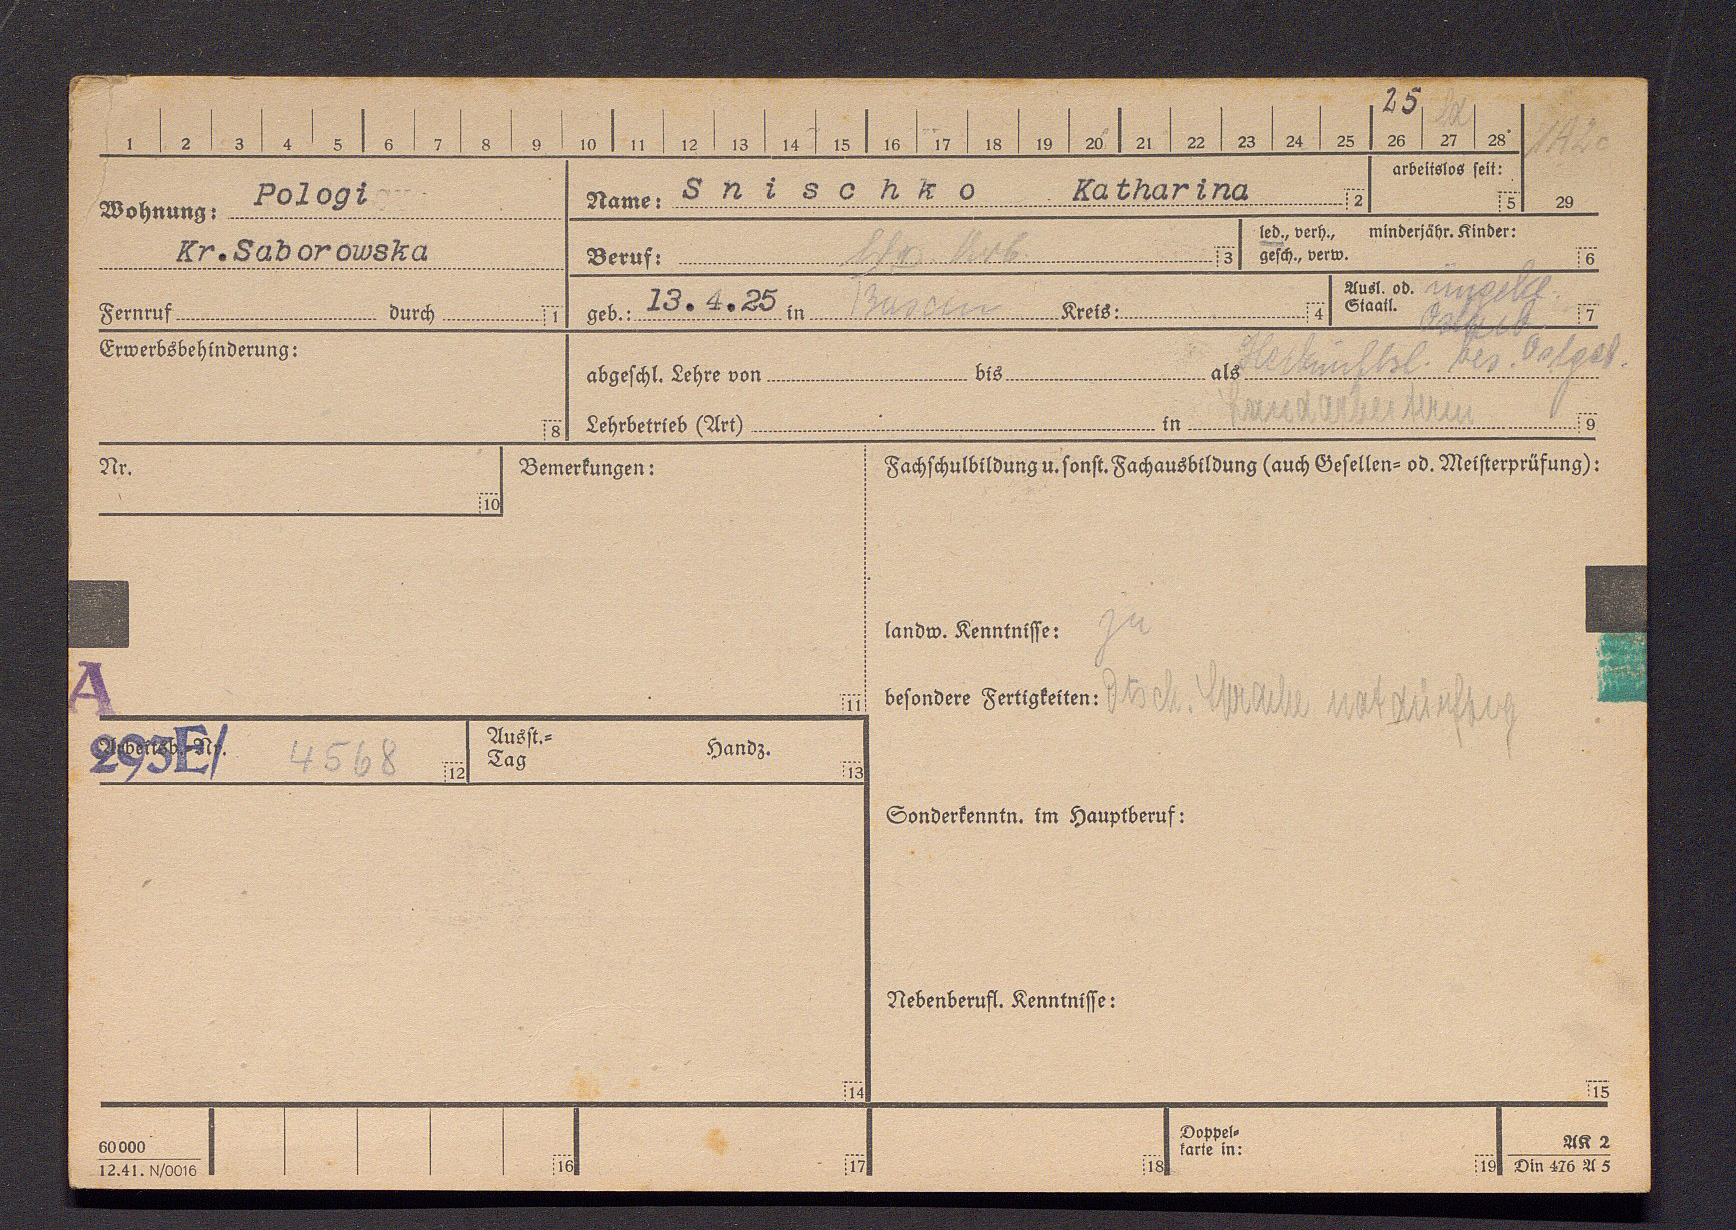 25
1 2 3 4 5 6 7 8 9 10 11 12 13 14 15 16 17 18 19 20 21 22 23 24 25 26 27 28
Wohnung: Pologi
Kr.Saborowska
Fernruf durch 1
Name: Snischko Katharina 2
arbeitslos seit: 5
29
Beruf: 3
led., verh., minderjähr. Kinder:
gesch., verw. 6
geb.: 13.4.25 in Kreis: 4
Ausl. od.
Staatl. 7
Erwerbsbehinderung: 8
abgeschl. Lehre von bis als
Herkunftsl. bes. Ostgeb.
Lehrbetrieb (Art) in Landarbeiterin 9
Nr. 10
Bemerkungen: 11
Fachschulbildung u. sonst. Fachausbildung (auch Gesellen= od. Meisterprüfung):
landw. Kenntnisse: ja
besondere Fertigkeiten: Dtsch. Sprache notdürftig
A
Arbeitsb.-Nr. 293E/ 4568 12
Ausst.= Handz.
Tag 13
Sonderkenntn. im Hauptberuf:
Nebenberufl. Kenntnisse:
14
15
60000
12.41. N/0016
16
17
18
Doppel=
karte in: 19
AK 2
Din 476 A 5